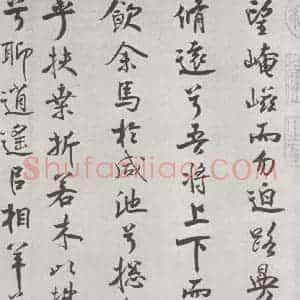 望崦嵫而勿迫路曼
脩遠兮吾將上下而
飲余馬於咸池兮揔
乎扶桒折若木以拂
兮聊逍遙㠯相羊